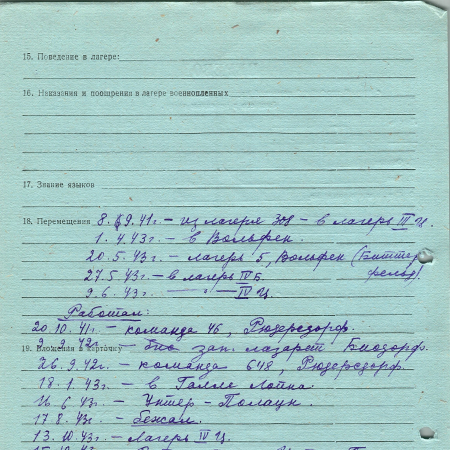 15. Поведение в лагере:
16. Наказания и поощрения в лагере военнопленных
17. Знание языков
18. Перемещения 8.9.41г. – из лагеря 308 – в лагерь III Ц.
1.4.43г. – в Вольфен.
20.5.43г. – лагерь 5, Вольфен (Биттер
фельд).
27.5.43г. – в лагерь IV Б.
9.6.43г. – " – IV Ц.
Работал:
20.10.41г. – команда 46, Рюдерсдорф.
19. Вложения в карточку
9.9.42г. – зап. лазарет
26.9.42г. – команда 648, Рюдерсдорф.
18.1.43г. – в Галле
16.6.43г. – Унтер-Полаун.
17.8.43г. – бежал.
13.10.43г. – лагерь IV Ц.